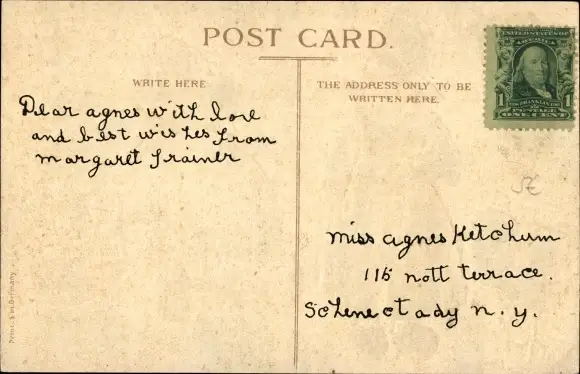 POST CARD.
WRITE HERE
Dear agnes with love
and best wishes from
margaret Frainer
THE ADDRESS ONLY TO BE
WRITTEN HERE.
UNITED STATES OF
AMERICA
1 1
POSTAGE
ONE CENT
miss agnes Ketchum
115 nott terrace.
Schenectady n. y.